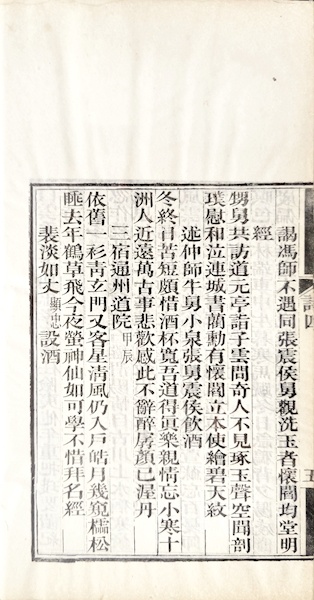 詩四
五
謁馮師不遇同張震侯舅觀洗玉者懷閻均堂明
經
甥舅共訪道元亭詣子雲問奇人不見琢玉聲空聞剖
璞慰和泣連城書蘭動有懷閻立本使繪碧天紋
述仲師牛舅小泉張舅震侯飲酒
冬終日苦短頗惜酒杯寬吾道得真樂親情忘小寒十
洲人近遠萬古事悲歡感此不辭醉房顏已渥丹
三宿通州道院甲辰
依舊一衫青玄門又客星清風仍入戶皓月幾窺櫺松
睡去年鶴草飛今夜螢神仙如可學不惜拜名經
裴淡如丈顯忠設酒